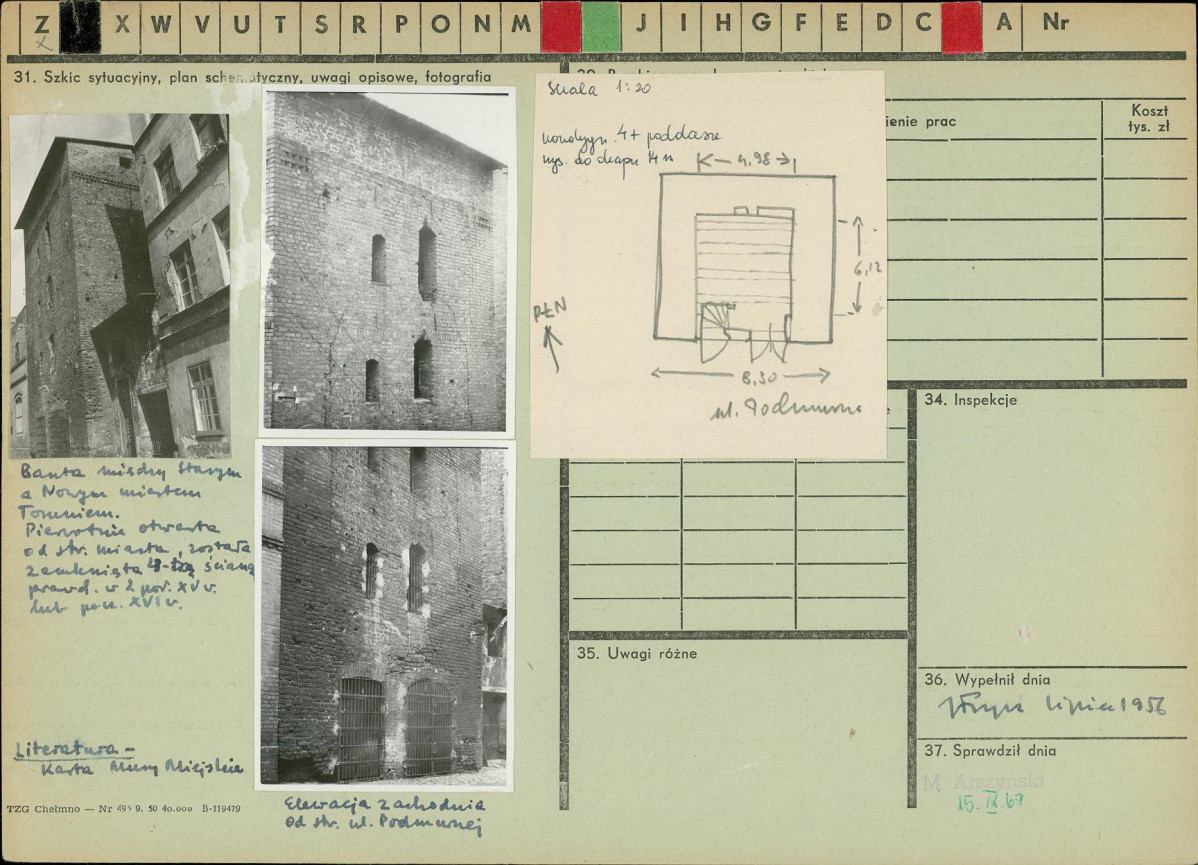 Z X W V U T S R P O N M J I H G F E D C A Nr
31. Szkic sytuacyjny, plan schematyczny, uwagi opisowe, fotografia
Skala 1:20
kondygn. 4 + poddasze
wys. do okapu 14 m
4,98
6,12
PŁN
8,30
ul. Podmurna
ienie prac
Koszt
tys. zł
Baszta między Starym
a Nowym miastem
Toruniem.
Pierwotnie otwarta
od str. miasta, została
zamknięta 4-tą ścianą
prawd. w 2 poł. XV w.
lub pocz. XVI w.
Literatura –
Karta Mury Miejskie
TZG Chełmno — Nr 495 9. 50 40.000 B-119479
Elewacja zachodnia
od str. ul. Podmurnej
34. Inspekcje
35. Uwagi różne
36. Wypełnił dnia
lipiec 1956
37. Sprawdził dnia
M. Arszyński
15. IX. 67